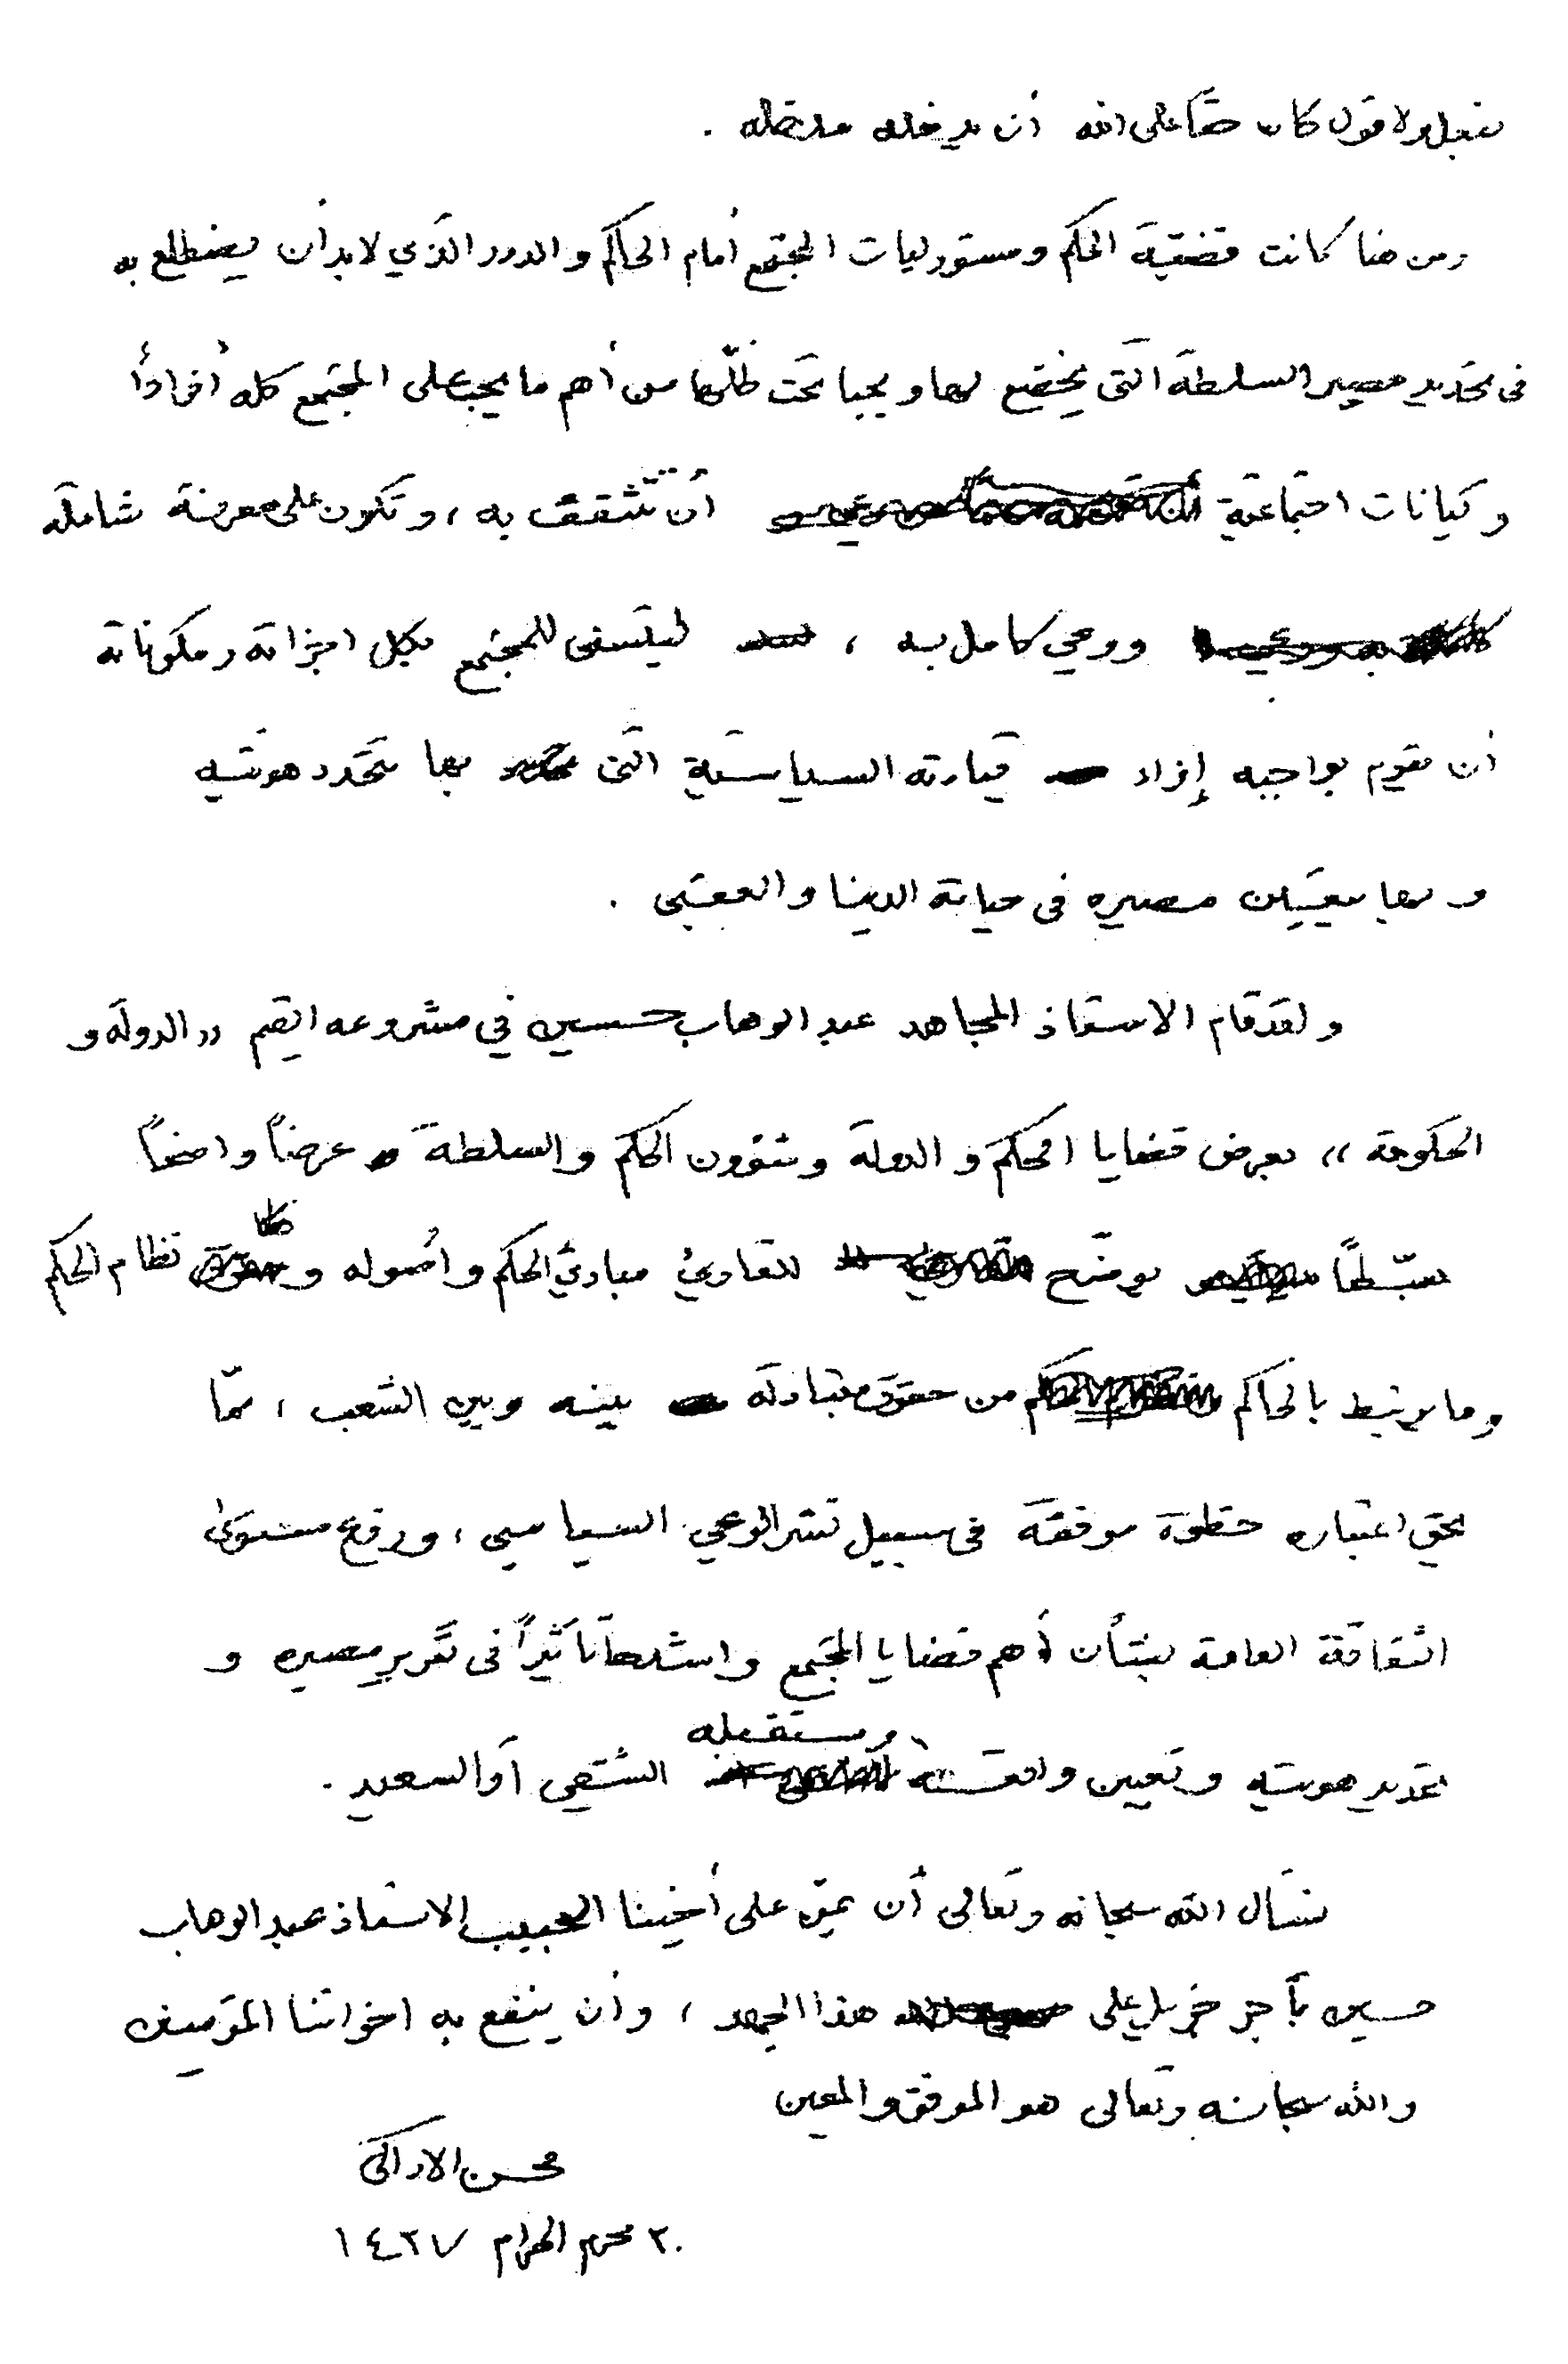 بفعل ولا قول كان حقاً على الله أن يدخله مدخله .
ومن هنا كانت قضية الحكم ومسئوليات المجتمع أمام الحاكم والدور الذي لابد أن يضطلع به
في تحديد مصير السلطة التي يخضع لها ويحيا تحت ظلّها من أهم ما يجب على المجتمع كله أفراداً
وكيانات اجتماعية أن تتثقف به ، وتكون على معرفة شاملة
ووعي كامل به ، ليتسنى للمجتمع بكل اجزائه ومكوناته
أن تقوم بواجبه إزاء قيادته السياسية التي بها تتحدد هويته
وبها يتعين مصيره في حياته الدنيا والعقبى .
ولقد قام الاستاذ المجاهد عبد الوهاب حسين في مشروعه القيم « الدولة و
الحكومة » بعرض قضايا الحكم والدولة وشؤون الحكم والسلطة عرضاً واضحاً
مبسّطاً يوضّح للقارئ مبادئ الحكم وأصوله و نظام الحكم
وما يرتبط بالحاكم من حقوق متبادلة بينه وبين الشعب ، ممّا
يحق اعتباره خطوة موفقة في سبيل نشر الوعي السياسي ، ورفع مستوى
الثقافة العامة بشأن أهم قضايا المجتمع وأشدها تأثيراً في تقرير مصيره و
تحديد هويته وتعيين واقعه ومستقبله الشقي أو السعيد .
نسأل الله سبحانه وتعالى أن يمنّ على أخينا الحبيب الاستاذ عبد الوهاب
حسين بأجر جزيل على هذا الجهد ، وأن ينفع به اخواننا المؤمنين
والله سبحانه وتعالى هو الموفق والمعين
محسن الاراكي
٢٠ محرم الحرام ١٤٢٧